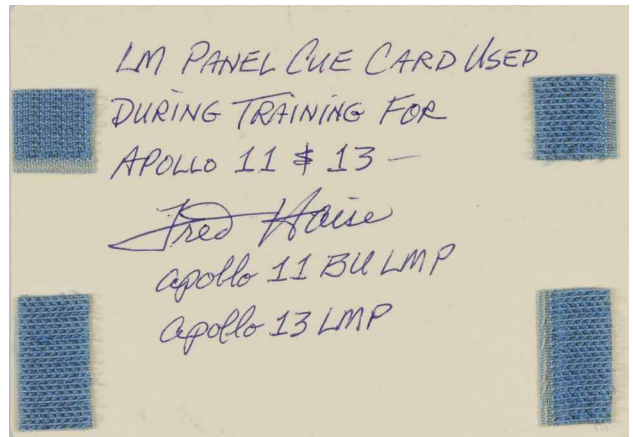 LM PANEL CUE CARD USED
DURING TRAINING FOR
APOLLO 11 & 13 —
Fred Haise
Apollo 11 BU LMP
Apollo 13 LMP